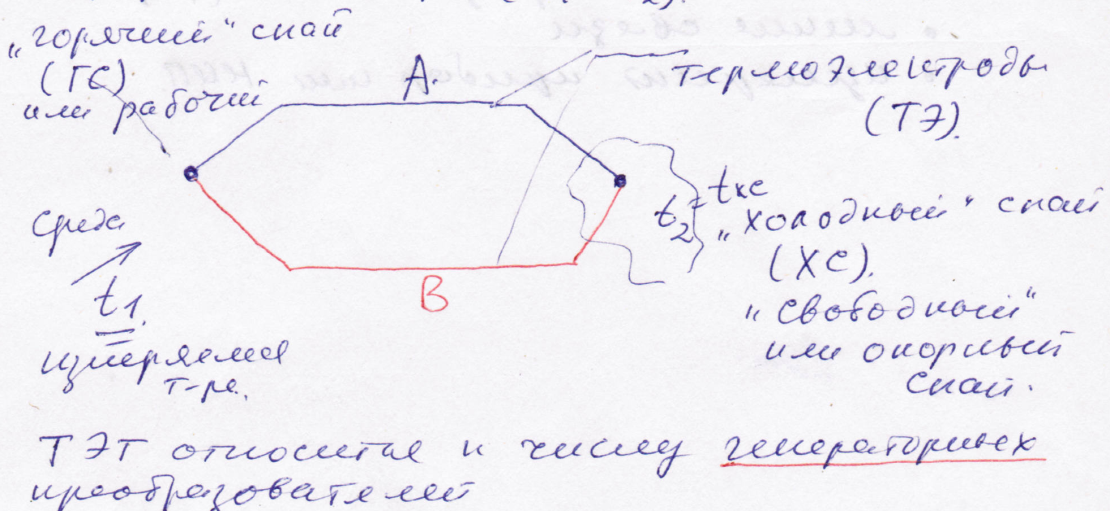 „горячий" спай
(ГС)
или рабочий
А
термоэлектроды
(ТЭ).
среда
t1
измеряемая
т-ра.
t2 = tхс
„холодный" спай
(ХС).
„свободный"
или опорный
спай.
В
ТЭТ относится к числу генераторных
преобразователей